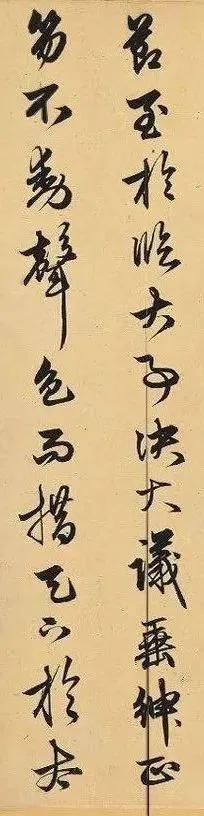 節至於臨大事決大議垂紳正
笏不動聲色而措天下於太